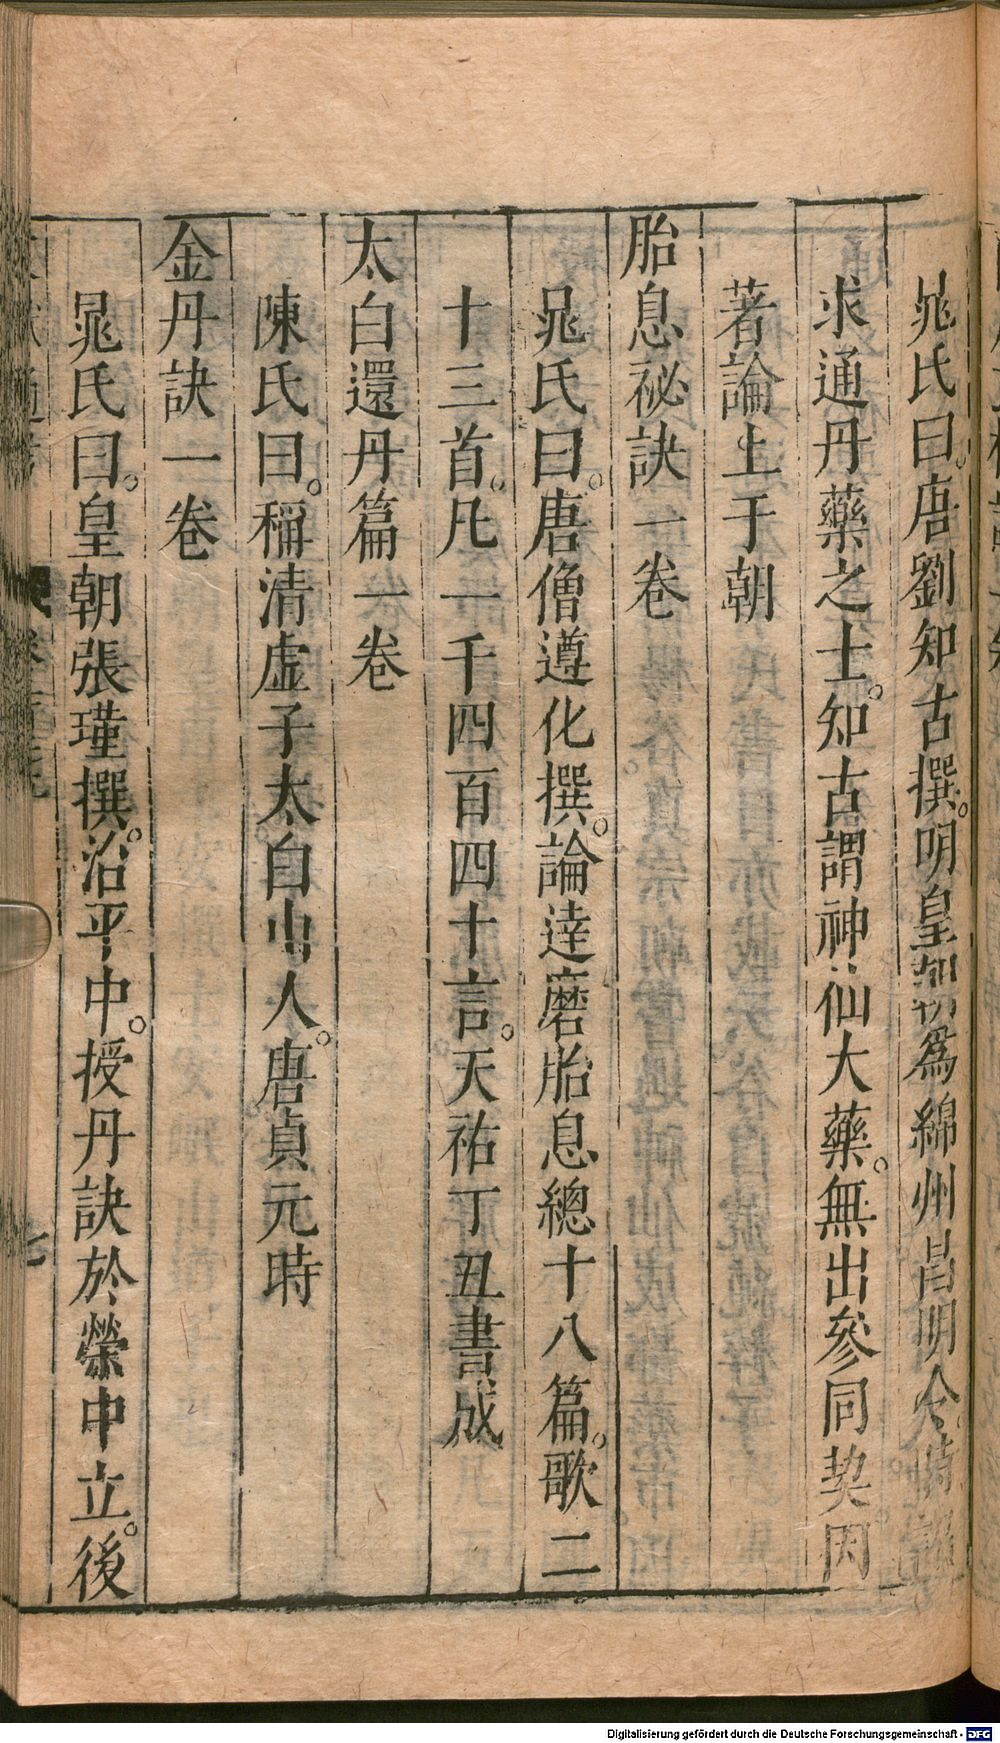 晁氏曰。唐劉知古撰。明皇朝爲綿州昌明令。時詔
求通丹藥之士。知古謂神仙大藥。無出參同契。因
著論上于朝
胎息祕訣一卷
晁氏曰。唐僧遵化撰。論達磨胎息總十八篇。歌二
十三首。凡一千四百四十言。天祐丁丑書成
太白還丹篇一卷
陳氏曰。稱清虛子太白山人。唐貞元時
金丹訣一卷
晁氏曰。皇朝張瑾撰。治平中。授丹訣於榮中立。後
七
Digitalisierung gefördert durch die Deutsche Forschungsgemeinschaft - DFG